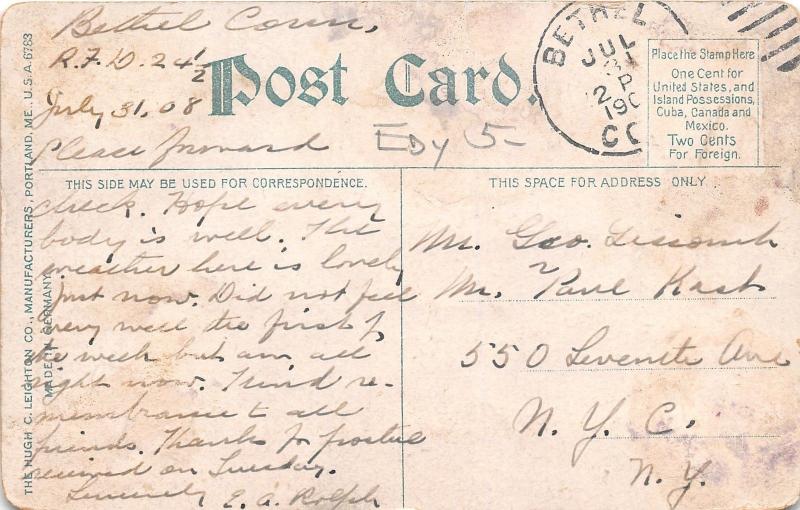 Bethel Conn,
R.F.D. 24 1/2
July 31, 08
Please forward
Post Card.
EDY 5-
BETHEL
JUL
31
2 P
190
CO
Place the Stamp Here
One Cent for
United States, and
Island Possessions,
Cuba, Canada and
Mexico.
Two Cents
For Foreign.
THE HUGH C. LEIGHTON CO., MANUFACTURERS, PORTLAND, ME., U.S.A. 6783
MADE IN GERMANY
THIS SIDE MAY BE USED FOR CORRESPONDENCE.
check. Hope every
body is well. The
weather here is lovely
just now. Did not feel
very well the first of
the week but am all
right now. Kind re-
membrance to all
friends. Thanks for postal
received on Tuesday.
Sincerely E. A. Rolph
THIS SPACE FOR ADDRESS ONLY
Mr. Geo.
Mr. Paul Kast
550 Seventh Ave
N. Y. C.
N. Y.